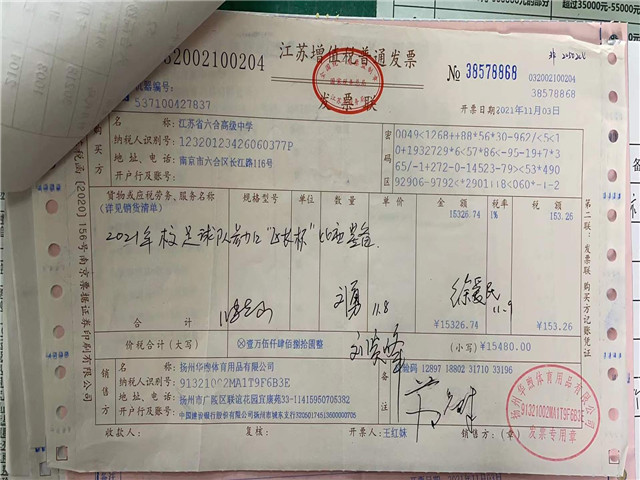 超过35000元-55000元
032002100204
江苏增值税普通发票
发票联
№ 38578868
032002100204
38578868
机器编号:
537100427837
开票日期2021年11月03日
购买方
名称:江苏省六合高级中学
纳税人识别号:12320123426060377P
地址、电话:南京市六合区长江路116号
开户行及账号:
密码区
0049<1268++88*56*30-962/<5<1
0+1932729*6<57*86<-95-19+7*3
65/-1+272-0-14523-79>>53*490
92906-9792<*2901:8<060*-1-2
货物或应税劳务、服务名称 规格型号 单位 数量 单价 金额 税率 税额
(详见销货清单) 15326.74 1% 153.26
2021年校足球队参加区"区长杯"比赛装备
刘勇 11.8
徐爱民 11.9
合计 ¥15326.74 ¥153.26
价税合计(大写) ⊗壹万伍仟肆佰捌拾圆整 (小写)¥15480.00
销售方
名称:扬州华煦体育用品有限公司
纳税人识别号:91321002MA1T9F6B3E
地址、电话:扬州市广陵区联谊花园宜康苑33-11415950705382
开户行及账号:中国建设银行股份有限公司扬州市城东支行32050174513600000705
备注
校验码 12897 18802 31710 33196
收款人: 复核: 开票人:王红妹 销售方:(章)
扬州华煦体育用品有限公司
91321002MA1T9F6B3E
发票专用章
第二联:发票联 购买方记账凭证
税总函〔2020〕156号南京票据证券印刷有限公司